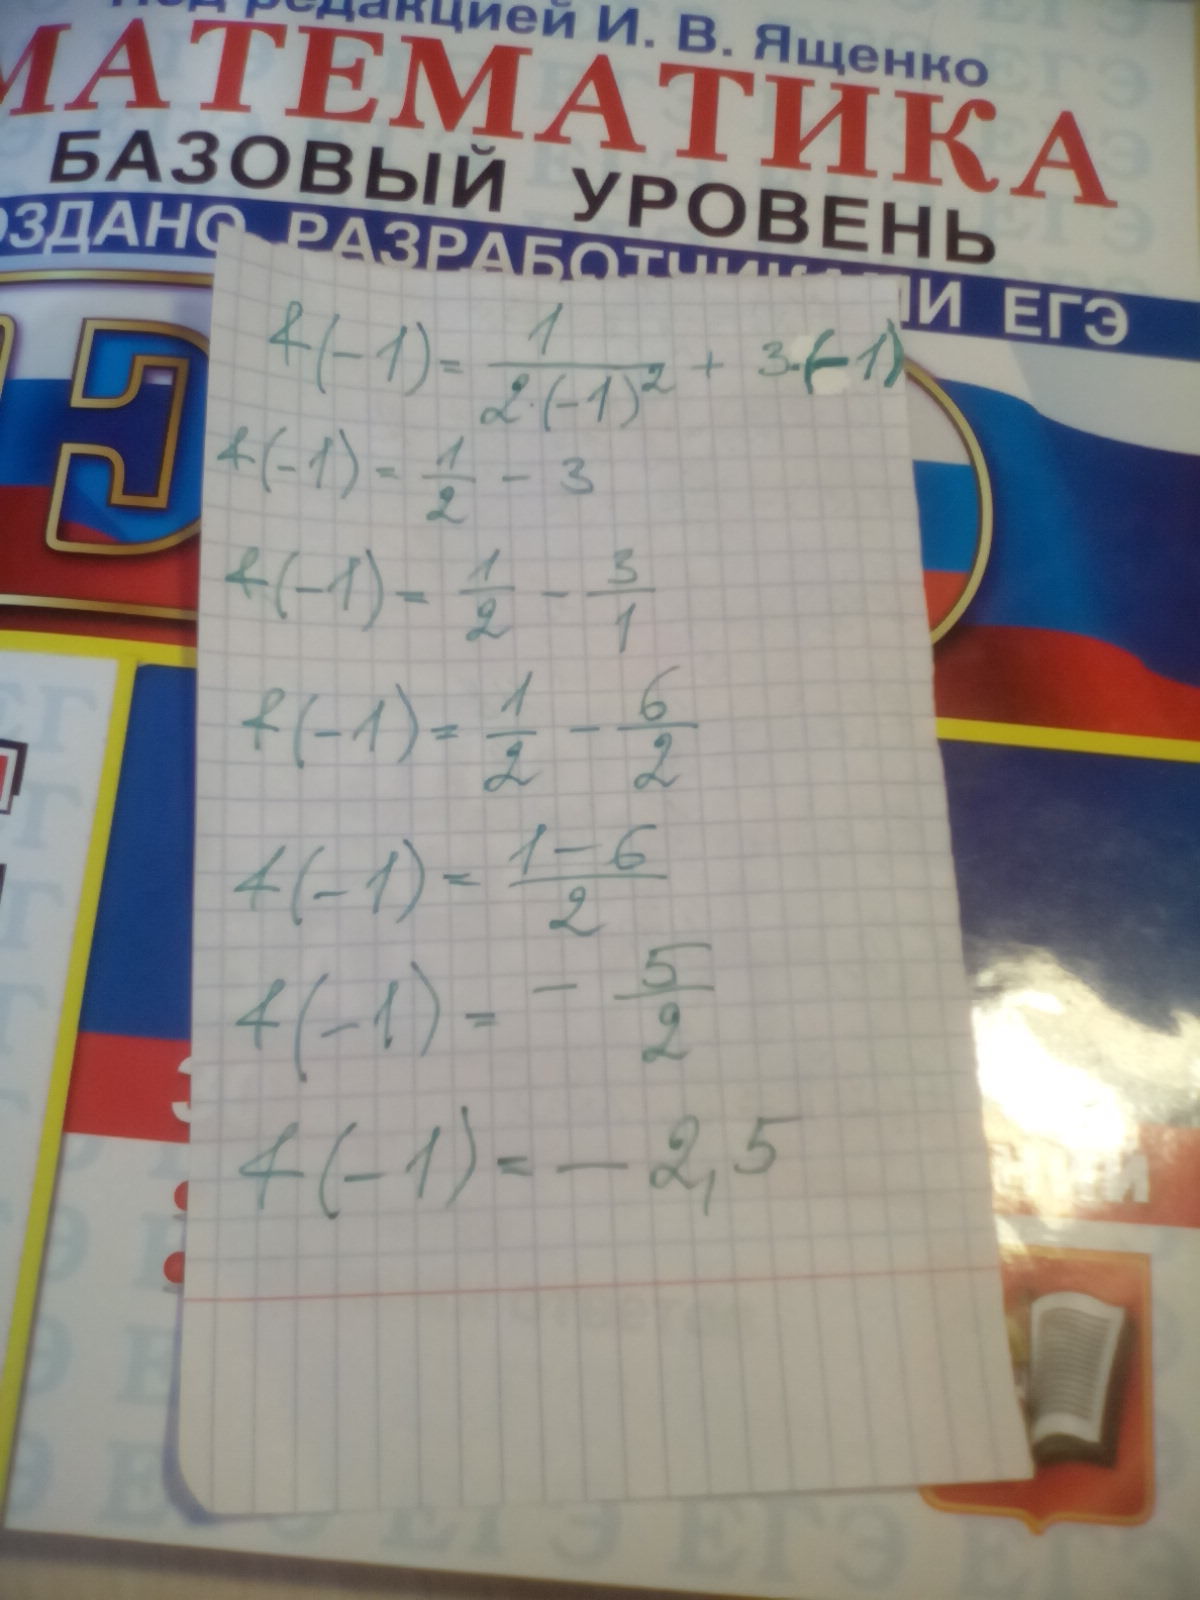 Под редакцией И. В. Ященко
МАТЕМАТИКА
БАЗОВЫЙ УРОВЕНЬ
ОЗДАНО РАЗРАБОТЧИКАМИ ЕГЭ
f(-1) = 1/(2·(-1)²) + 3·(-1)
f(-1) = 1/2 - 3
f(-1) = 1/2 - 3/1
f(-1) = 1/2 - 6/2
f(-1) = (1-6)/2
f(-1) = - 5/2
f(-1) = - 2,5